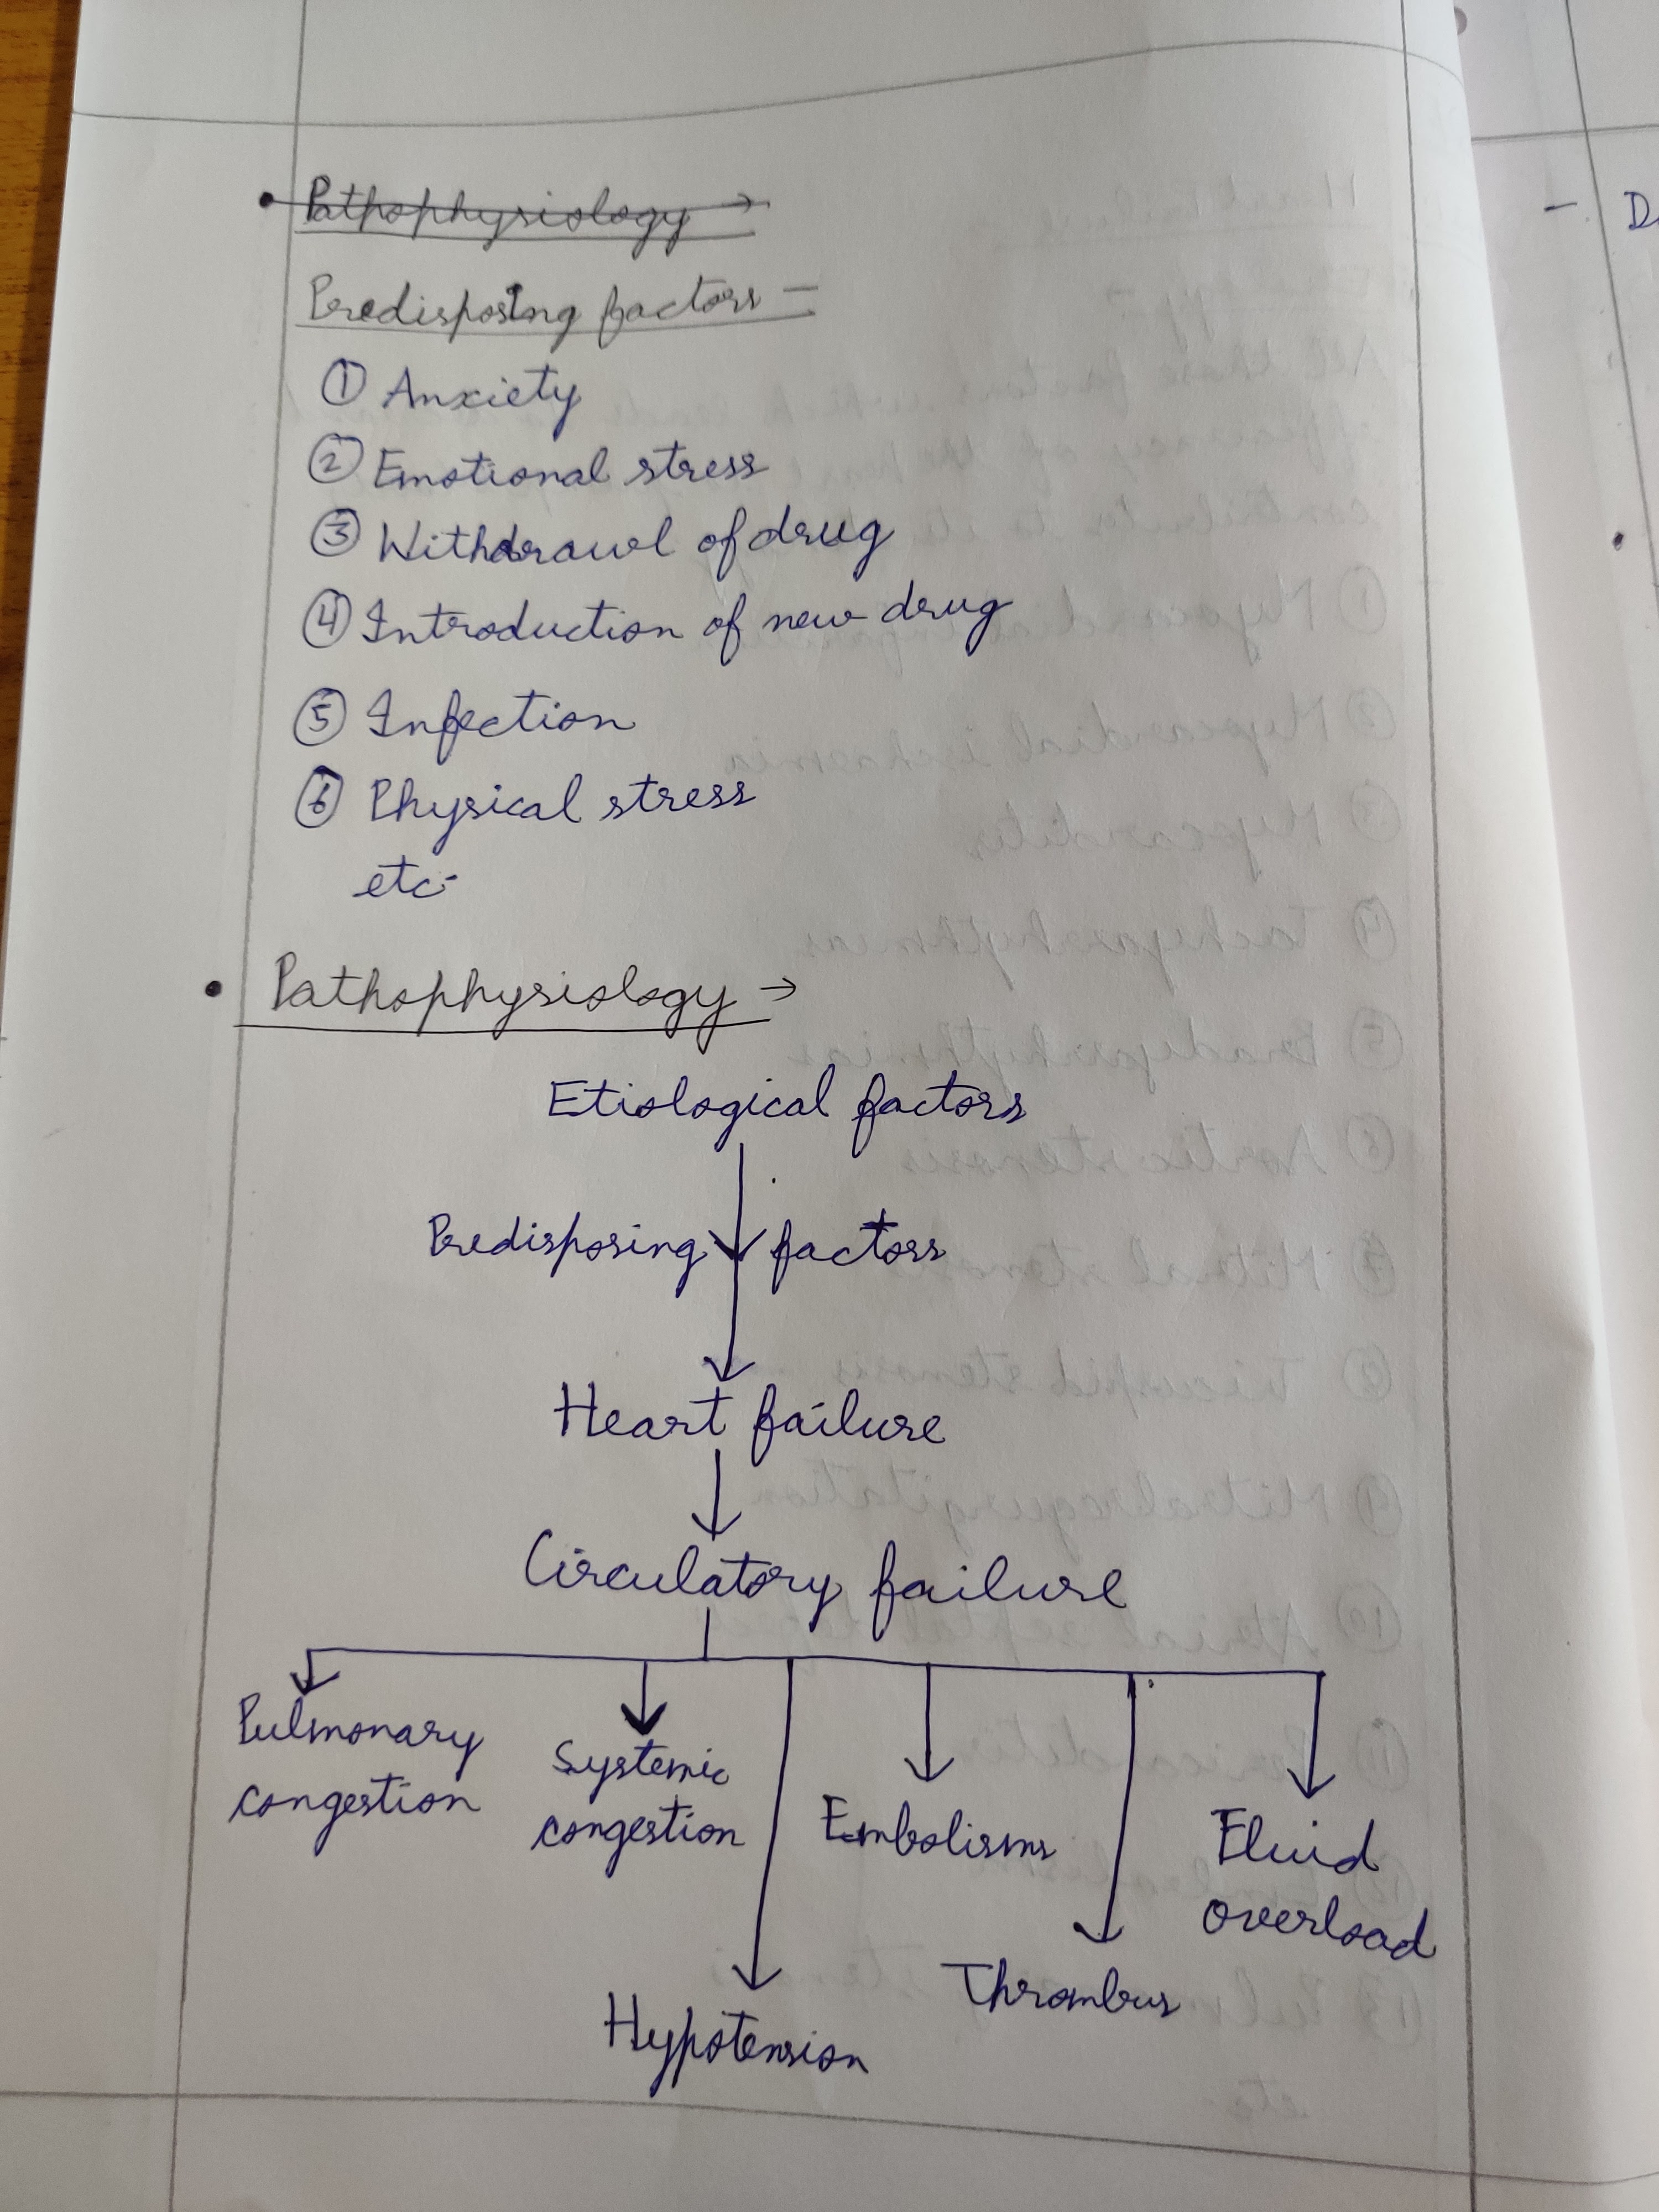 Pathophysiology →
Predisposing factors —
① Anxiety
② Emotional stress
③ Withdrawl of drug
④ Introduction of new drug
⑤ Infection
⑥ Physical stress
etc.
• Pathophysiology →
Etiological factors
Predisposing factors
Heart failure
Circulatory failure
Pulmonary
congestion
Systemic
congestion
Embolisms
Fluid
overload
Thrombus
Hypotension